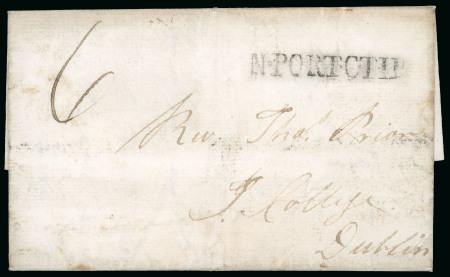 6
N·PORT·CTH
Rev. Thos. Prior
T. College
Dublin